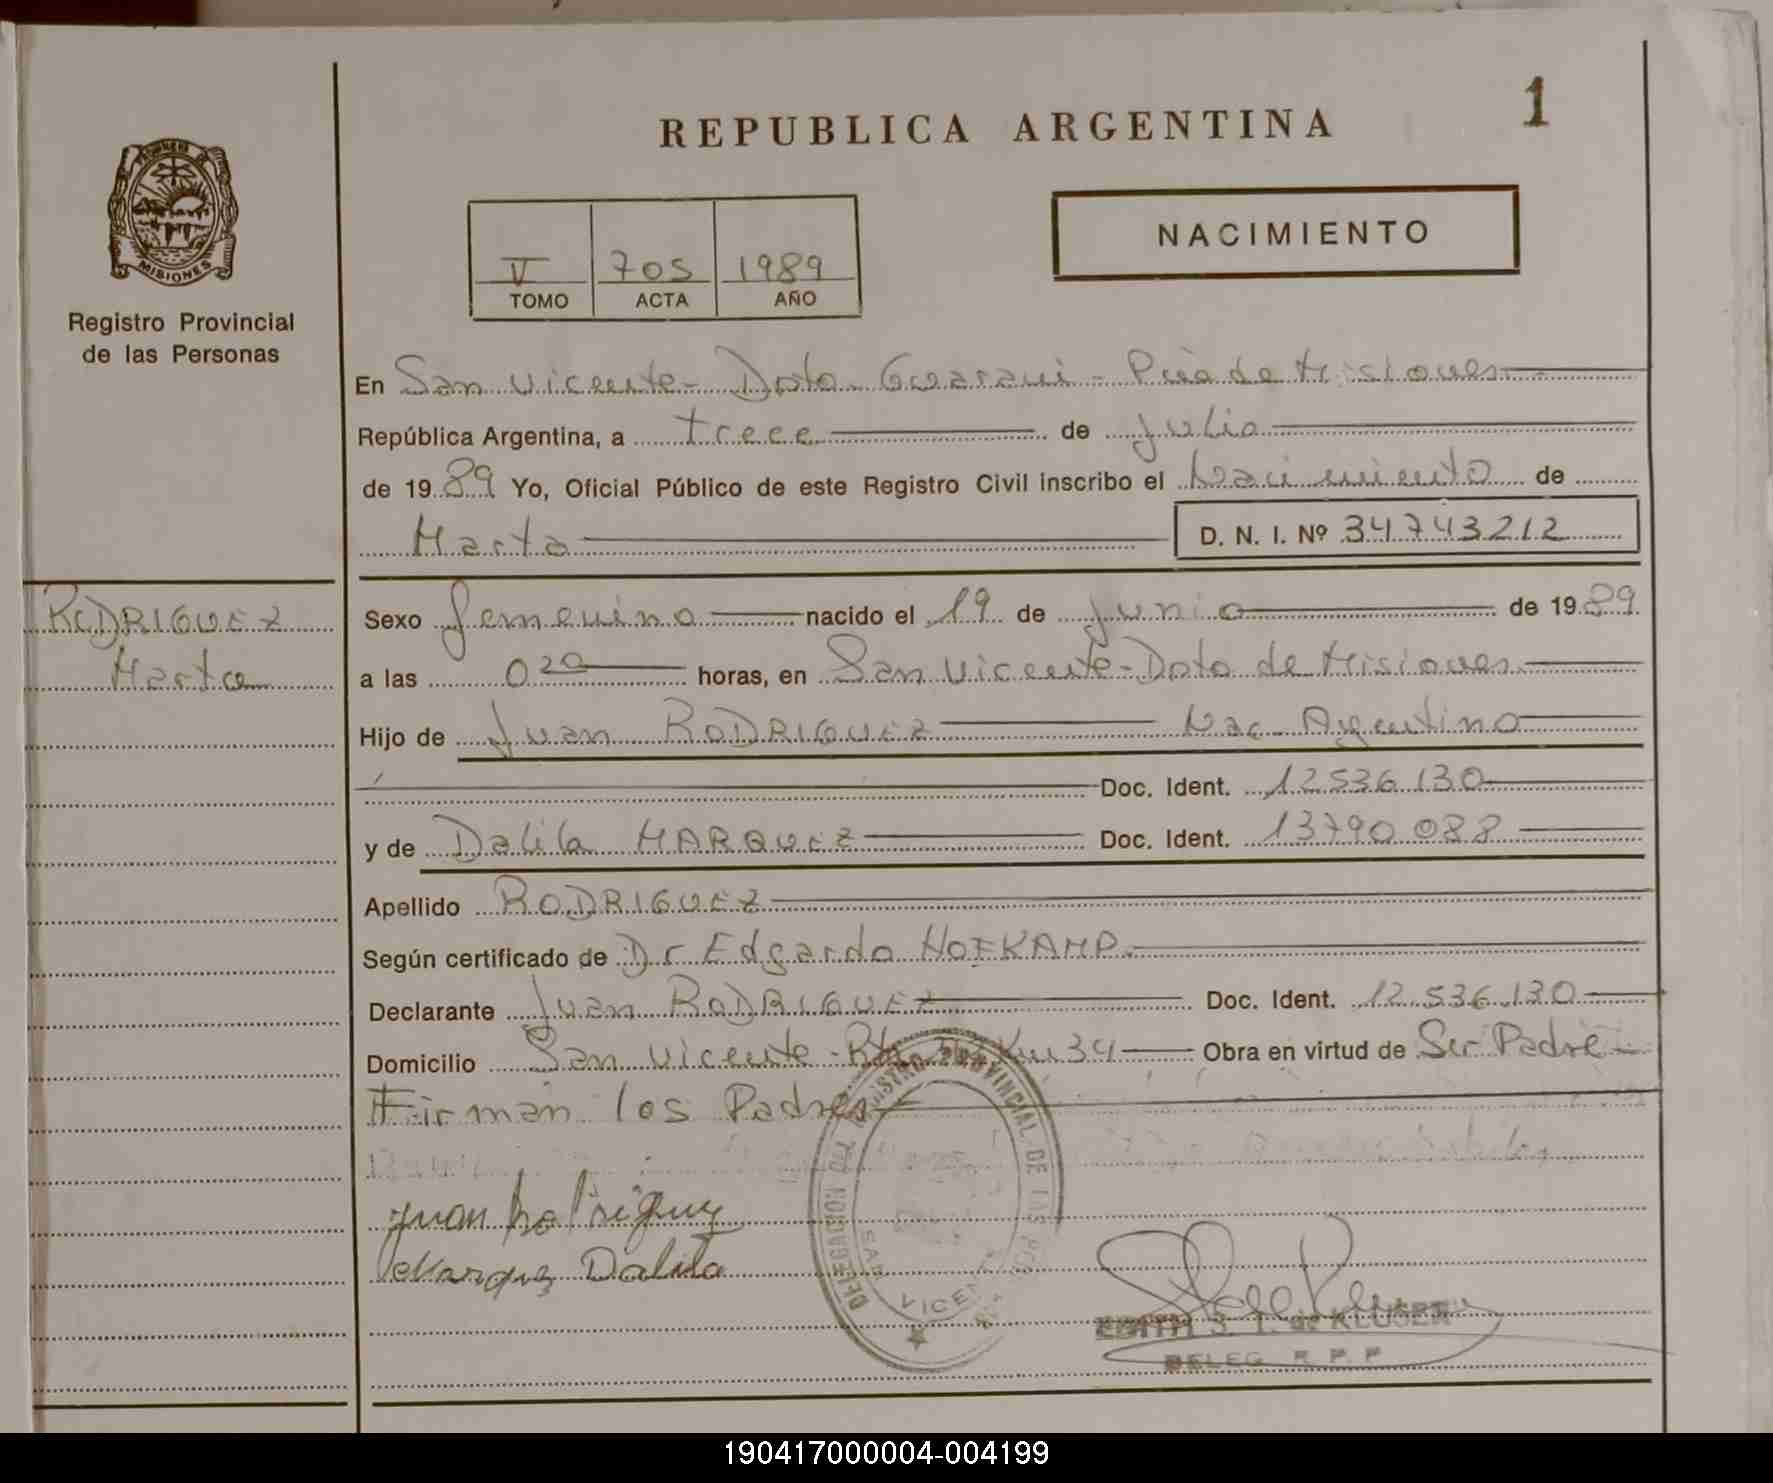 REPUBLICA ARGENTINA
1
PROVINCIA DE
MISIONES
Registro Provincial
de las Personas
V 705 1989
TOMO ACTA AÑO
NACIMIENTO
En San Vicente - Dpto. Guaraní - Pcia de Misiones
República Argentina, a trece de Julio
de 1989 Yo, Oficial Público de este Registro Civil inscribo el Nacimiento de
Marta D. N. I. Nº 34743212
RODRIGUEZ
Marta
Sexo femenino nacido el 19 de Junio de 1989
a las 0 20 horas, en San Vicente - Dpto de Misiones
Hijo de Juan RODRIGUEZ Nac. Argentino
Doc. Ident. 12.536.130
y de Dalila MARQUEZ Doc. Ident. 13790.088
Apellido RODRIGUEZ
Según certificado de Dr Edgardo HOFKAMP.
Declarante Juan RODRIGUEZ Doc. Ident. 12.536.130
Domicilio San Vicente - Km 34 Obra en virtud de Ser Padre
Firman los Padres
Juan Rodriguez
Marquez Dalila
DELEGACION DEL REGISTRO PROVINCIAL DE LAS
SAN VICENTE
EDITH S. T. de KLUSER
DELEG. R. P. P.
190417000004-004199